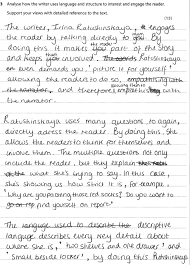 3 Analyse how the writer uses language and structure to interest and engage the reader.
Support your views with detailed reference to the text.
(15)
The writer, Irina Ratushinskaya, engages
the reader by talking directly to you. By
doing this it makes you part of the story
and keeps you involved.
even demands you, 'picture it for yourself'
allowing the reader to do so, empathising with
the narrator, and therefore
the narrator.
Ratushinskaya uses many questions to again,
directly address the reader. By doing this, she
allows the readers to think for themselves and
involve them. The multiple questions not only
include the reader, but they explain
what she's trying to say. In this case,
she's showing us how since it is, for example,
'Why are you poring those red scarfs? Do you want to
go to and find yourself on report?'
The language used to describe the descriptive
language describes every very detail about
where she is, 'two shelves and one drawer' and
'small beside locker', by doing this, Ratushinskaya